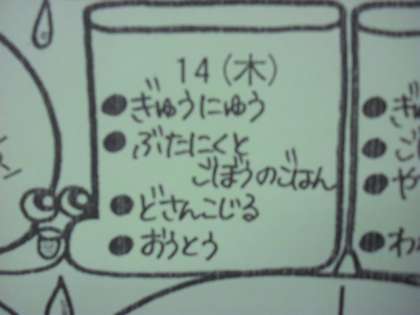 14(木)
●ぎゅうにゅう
●ぶたにくと
ごぼうのごはん
●どさんこじる
●おうとう